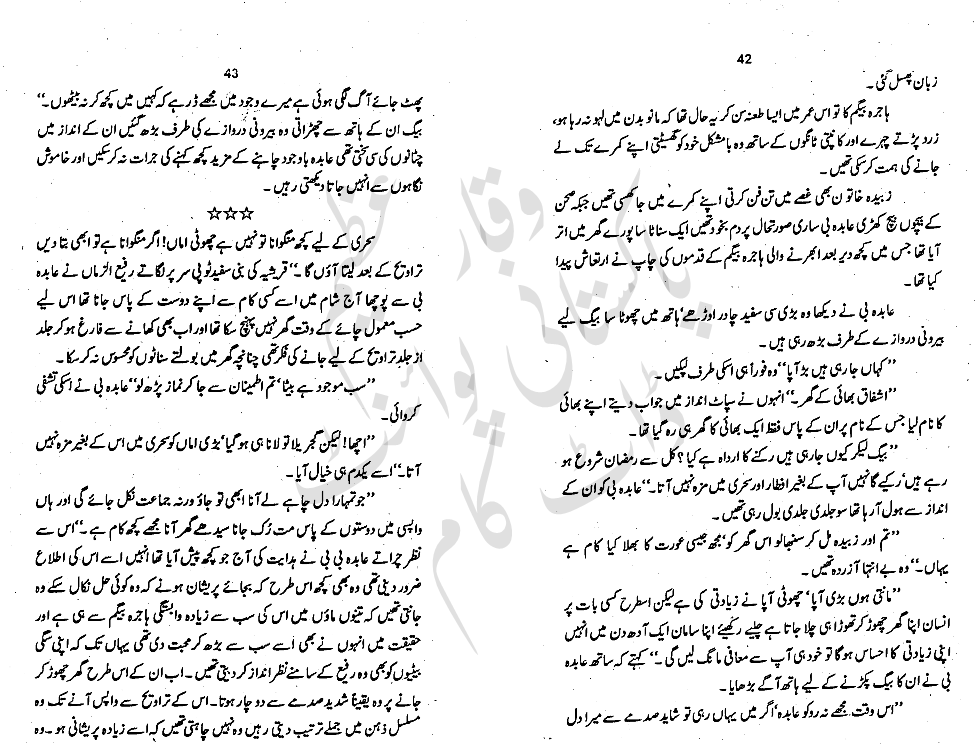 42
زبان پھسل گئی۔
ہاجرہ بیگم کا تو اس عمر میں ایسا طعنہ سن کر یہ حال تھا کہ مانو بدن میں لہو نہ رہا ہو،
زرد پڑتے چہرے اور کانپتی ٹانگوں کے ساتھ وہ بامشکل خود کو گھسیٹتی اپنے کمرے تک لے
جانے کی ہمت کر سکی تھیں۔
زبیدہ خاتون بھی غصے میں تن فن کرتی اپنے کمرے میں جا گھسی تھیں جبکہ صحن
کے بیچوں بیچ کھڑی عابدہ بی ساری صورتحال پر دم بخود تھیں ایک سناٹا سا پورے گھر میں اتر
آیا تھا جس میں کچھ دیر بعد ابھرنے والی ہاجرہ بیگم کے قدموں کی چاپ نے ارتعاش پیدا
کیا تھا۔
عابدہ بی نے دیکھا وہ بڑی سی سفید چادر اوڑھے‘ ہاتھ میں چھوٹا سا بیگ لیے
بیرونی دروازے کے طرف بڑھ رہی ہیں۔
’’کہاں جا رہی ہیں بڑ آپا‘‘ وہ فوراً ہی اسکی طرف لپکیں۔
’’اشفاق بھائی کے گھر۔‘‘ انہوں نے سپاٹ انداز میں جواب دیتے اپنے بھائی
کا نام لیا جس کے نام پر ان کے پاس فقط ایک بھائی کا گھر ہی رہ گیا تھا۔
’’بیگ لیکر کیوں جا رہی ہیں رکنے کا ارداہ ہے کیا؟ کل سے رمضان شروع ہو
رہے ہیں‘ رکیے گا نہیں آپ کے بغیر افطار اور سحری میں مزہ نہیں آتا۔‘‘ عابدہ بی کو ان کے
انداز سے ہول آ رہا تھا سو جلدی جلدی بول رہی تھیں۔
’’تم اور زبیدہ مل کر سنبھالو اس گھر کو‘ مجھ جیسی عورت کا بھلا کیا کام ہے
یہاں۔‘‘ وہ بے انتہا آزردہ تھیں۔
’’مانتی ہوں بڑی آپا‘ چھوٹی آپا نے زیادتی کی ہے لیکن اسطرح کسی بات پر
انسان اپنا گھر چھوڑ کر تھوڑا ہی چلا جاتا ہے چلیے رکھیئے اپنا سامان ایک آدھ دن میں انہیں
اپنی زیادتی کا احساس ہوگا تو خود ہی آپ سے معافی مانگ لیں گی۔‘‘ کہتے کہ ساتھ عابدہ
بی نے ان کا بیگ پکڑنے کے لیے ہاتھ آگے بڑھایا۔
’’اس وقت مجھے نہ روکو عابدہ‘ اگر میں یہاں رہی تو شاید صدمے سے میرا دل
43
پھٹ جائے آگ لگی ہوئی ہے میرے وجود میں مجھے ڈر ہے کہ کہیں میں کچھ کر نہ بیٹھوں۔‘‘
بیگ ان کے ہاتھ سے چھڑاتی وہ بیرونی دروازے کی طرف بڑھ گئیں ان کے انداز میں
چٹانوں کی سی سختی تھی عابدہ باوجود چاہنے کے مزید کچھ کہنے کی جرات نہ کر سکیں اور خاموش
نگاہوں سے انہیں جاتا دیکھتی رہیں۔
☆☆☆
سحری کے لیے کچھ منگوانا تو نہیں ہے چھوٹی اماں! اگر منگوانا ہے تو ابھی بتا دیں
تراویح کے بعد لیتا آؤں گا۔‘‘ قریشیہ کی بنی سفید ٹوپی سر پر لگاتے رفیع الزماں نے عابدہ
بی سے پوچھا آج شام میں اسے کسی کام سے اپنے دوست کے پاس جانا تھا اس لیے
حسب معمول چائے کے وقت گھر نہیں پہنچ سکا تھا اور اب بھی کھانے سے فارغ ہو کر جلد
از جلد تراویح کے لیے جانے کی فکر تھی چنانچہ گھر میں بولتے سناٹوں کو محسوس نہ کر سکا۔
’’سب موجود ہے بیٹا‘ تم اطمینان سے جا کر نماز پڑھ لو‘‘ عابدہ بی نے اسکی تشفی
کروائی۔
’’اچھا! لیکن گجریلا تو لانا ہی ہو گیا‘ بڑی اماں کو سحری میں اس کے بغیر مزہ نہیں
آتا۔‘‘ اسے یکدم ہی خیال آیا۔
’’جو تمہارا دل چاہے لے آنا ابھی تو جاؤ ورنہ جماعت نکل جائے گی اور ہاں
واپسی میں دوستوں کے پاس مت رُک جانا سیدھے گھر آنا مجھے کچھ کام ہے۔‘‘ اس سے
نظر چراتے عابدہ بی نے ہدایت کی آج جو کچھ پیش آیا تھا انہیں اسے اس کی اطلاع
ضرور دینی تھی وہ بھی کچھ اس طرح کہ بجائے پریشان ہونے کہ وہ کوئی حل نکال سکے وہ
جانتی تھیں کہ تینوں ماؤں میں اس کی سب سے زیادہ وابستگی ہاجرہ بیگم سے ہی ہے اور
حقیقت میں انہوں نے بھی اسے سب سے بڑھ کر محبت دی تھی یہاں تک کہ اپنی سگی
بیٹیوں کو بھی وہ رفیع کے سامنے نظر انداز کر دیتی تھیں۔ اب ان کے اس طرح گھر چھوڑ کر
جانے پر وہ یقیناً شدید صدمے سے دوچار ہوتا۔ اس کے تراویح سے واپس آنے تک وہ
مسلسل ذہن میں جملے ترتیب دیتی رہیں وہ نہیں چاہتی تھیں کہ اسے زیادہ پریشانی ہو۔ وہ
وقار عظیم
پاکستانی پوائنٹ
ڈاٹ کام